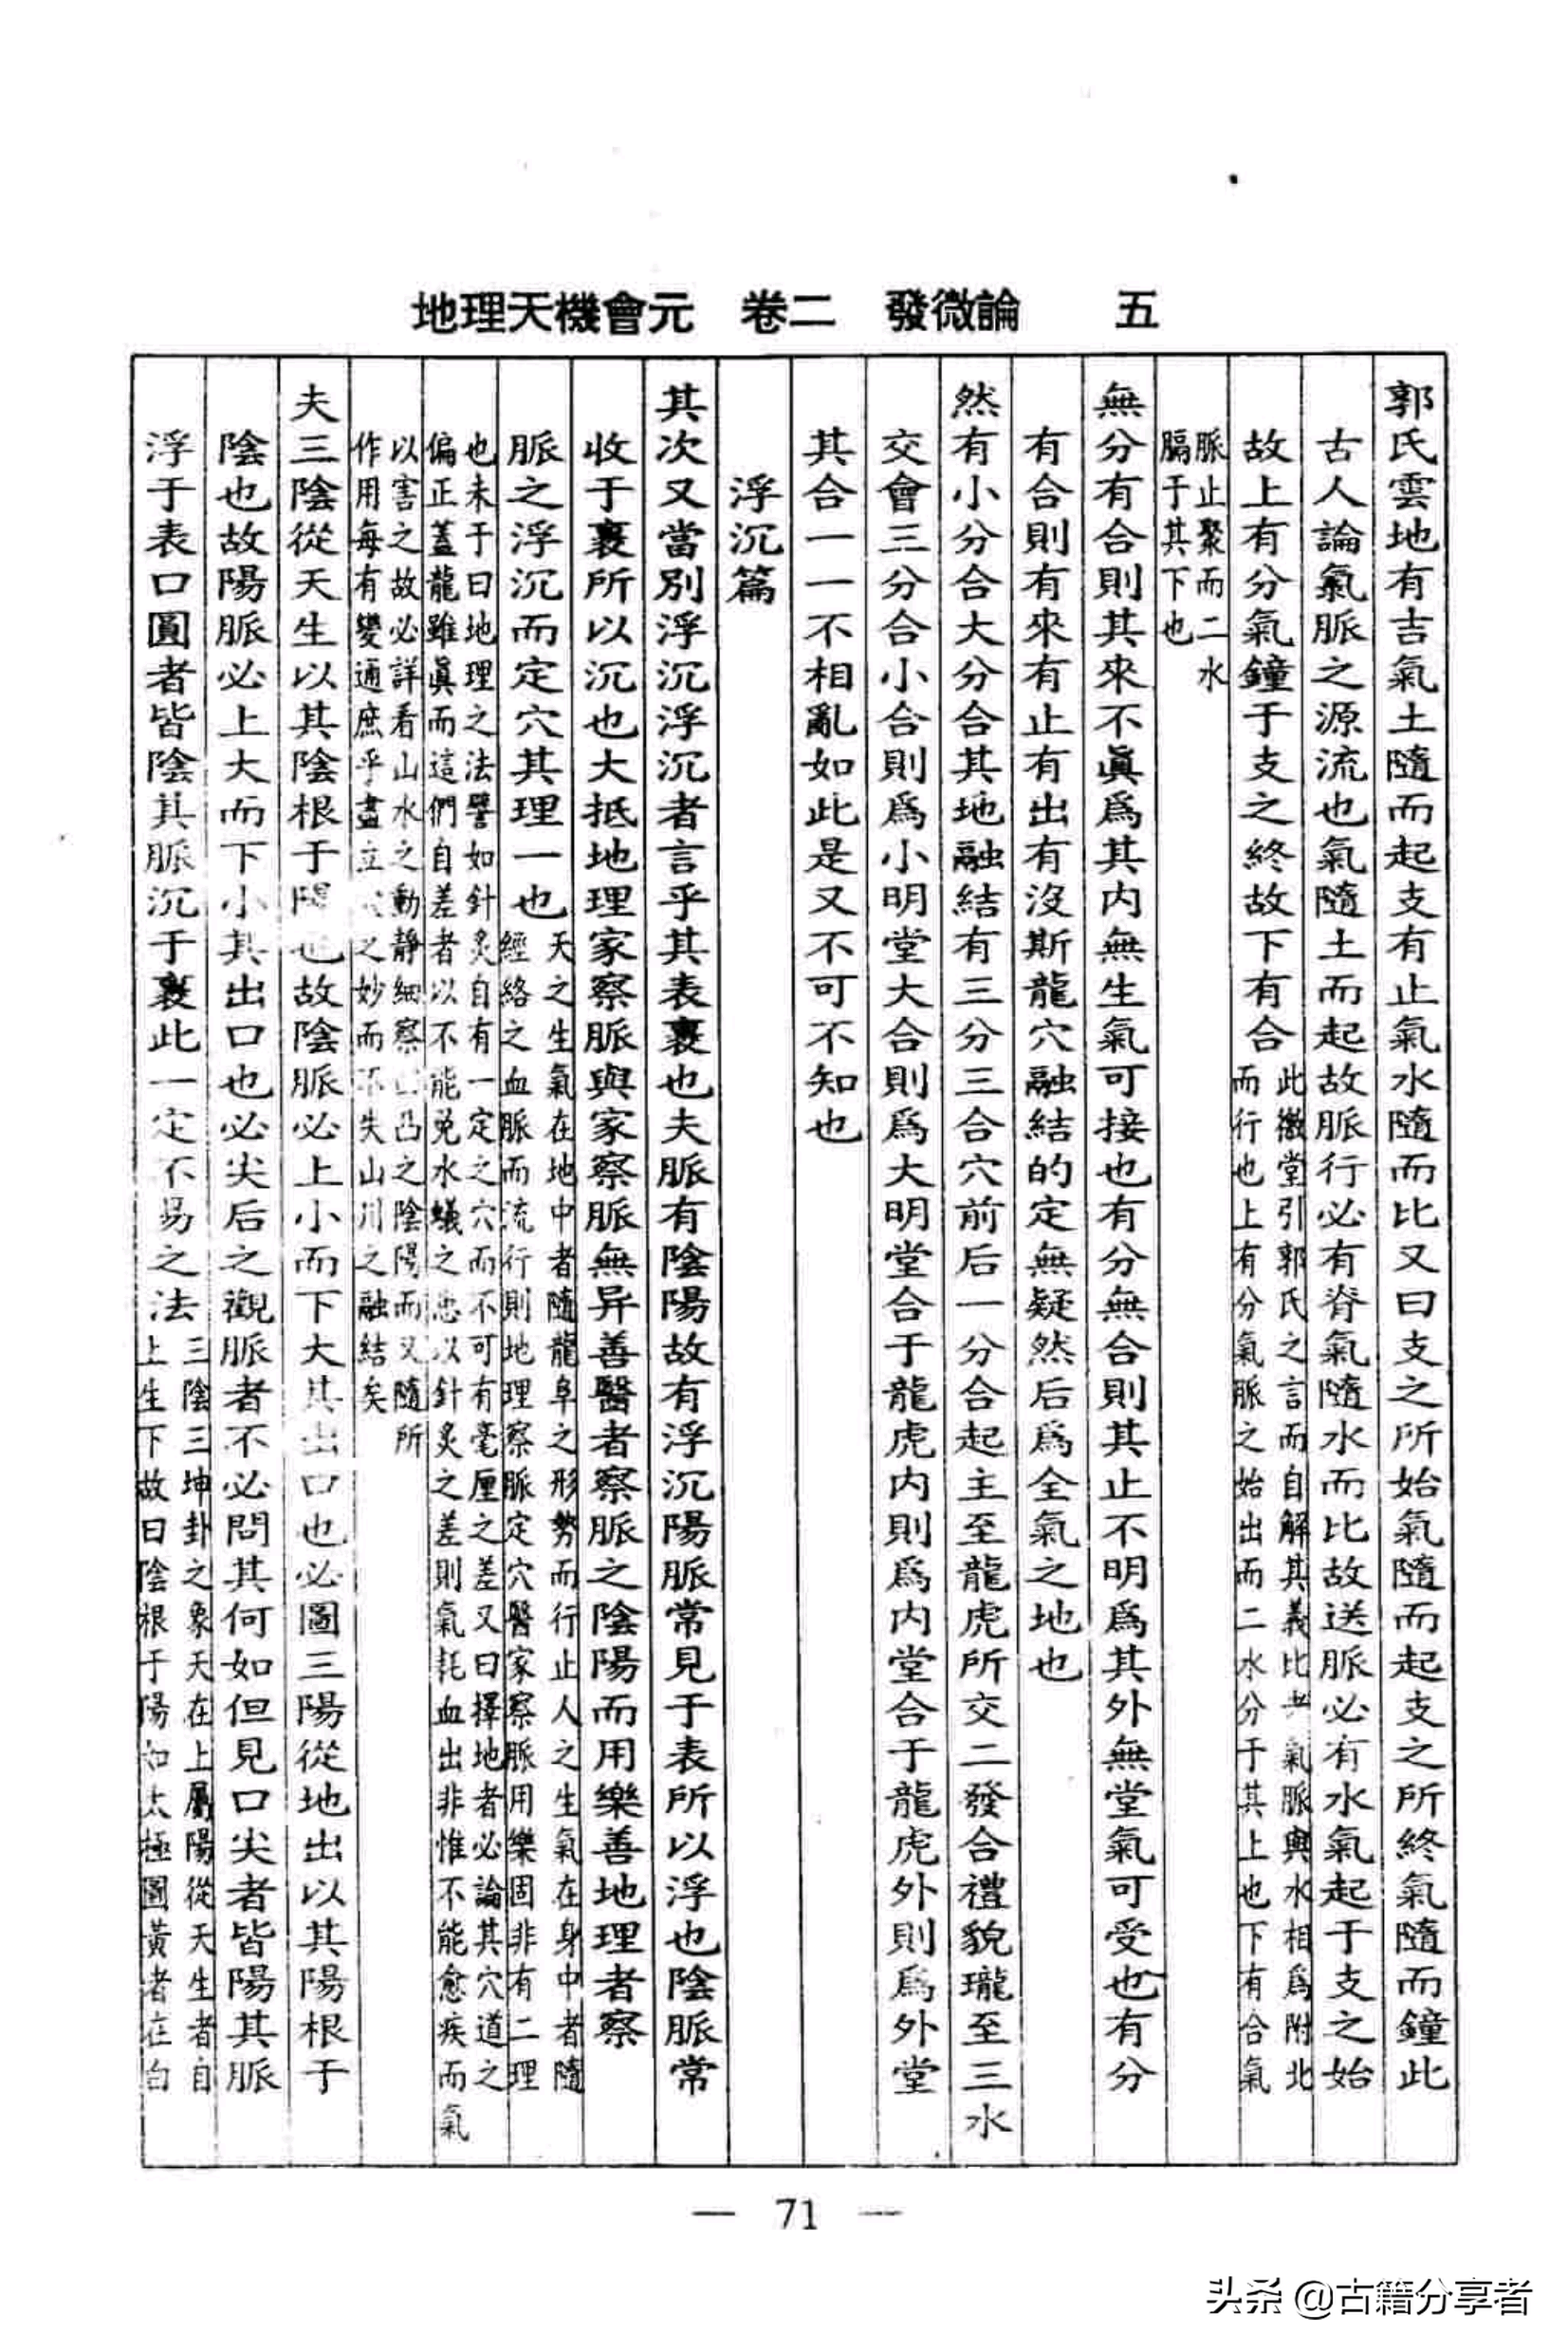 地理天機會元 卷二 發微論 五
郭氏雲地有吉氣土隨而起支有止氣水隨而比又曰支之所始氣隨而起支之所終氣隨而鐘此
古人論氣脈之源流也氣隨土而起故脈行必有脊氣隨水而比故送脈必有水氣起于支之始
故上有分氣鐘于支之終故下有合
此微堂引郭氏之言而自解其義比 氣脈與水相爲附北
而行也上有分氣脈之始出而二水分于其上也下有合氣
脈止聚而二水
膈于其下也
無分有合則其來不眞爲其内無生氣可接也有分無合則其止不明爲其外無堂氣可受也有分
有合則有來有止有出有沒斯龍穴融結的定無疑然后爲全氣之地也
然有小分合大分合其地融結有三分三合穴前后一分合起主至龍虎所交二發合禮貌瓏至三水
交會三分合小合則爲小明堂大合則爲大明堂合于龍虎内則爲内堂合于龍虎外則爲外堂
其合一一不相亂如此是又不可不知也
浮沉篇
其次又當別浮沉浮沉者言乎其表裏也夫脈有陰陽故有浮沉陽脈常見于表所以浮也陰脈常
收于裏所以沉也大抵地理家察脈與家察脈無异善醫者察脈之陰陽而用樂善地理者察
脈之浮沉而定穴其理一也
天之生氣在地中者隨龍阜之形勢而行止人之生氣在身中者隨
經絡之血脈而流行則地理察脈定穴醫家察脈用樂固非有二理
也未于曰地理之法譬如針炙自有一定之穴而不可有毫厘之差又曰擇地者必論其穴道之
偏正蓋龍雖眞而這們自差者以不能免水蟻之 以針炙之差則氣耗血出非惟不能愈疾而氣
以害之故必詳看山水之動靜細察 凸之陰陽而又隨所
作用每有變通庶乎盡立 之妙而不失山川之融結矣
夫三陰從天生以其陰根于陽也故陰脈必上小而下大其出口也必圖三陽從地出以其陽根于
陰也故陽脈必上大而下小其出口也必尖后之觀脈者不必問其何如但見口尖者皆陽其脈
浮于表口圓者皆陰其脈沉于裏此一定不易之法
三陰三坤卦之象天在上屬陽從天生者自
上生下故曰陰根于陽如太極圖黃者在白
— 71 —
头条 @古籍分享者